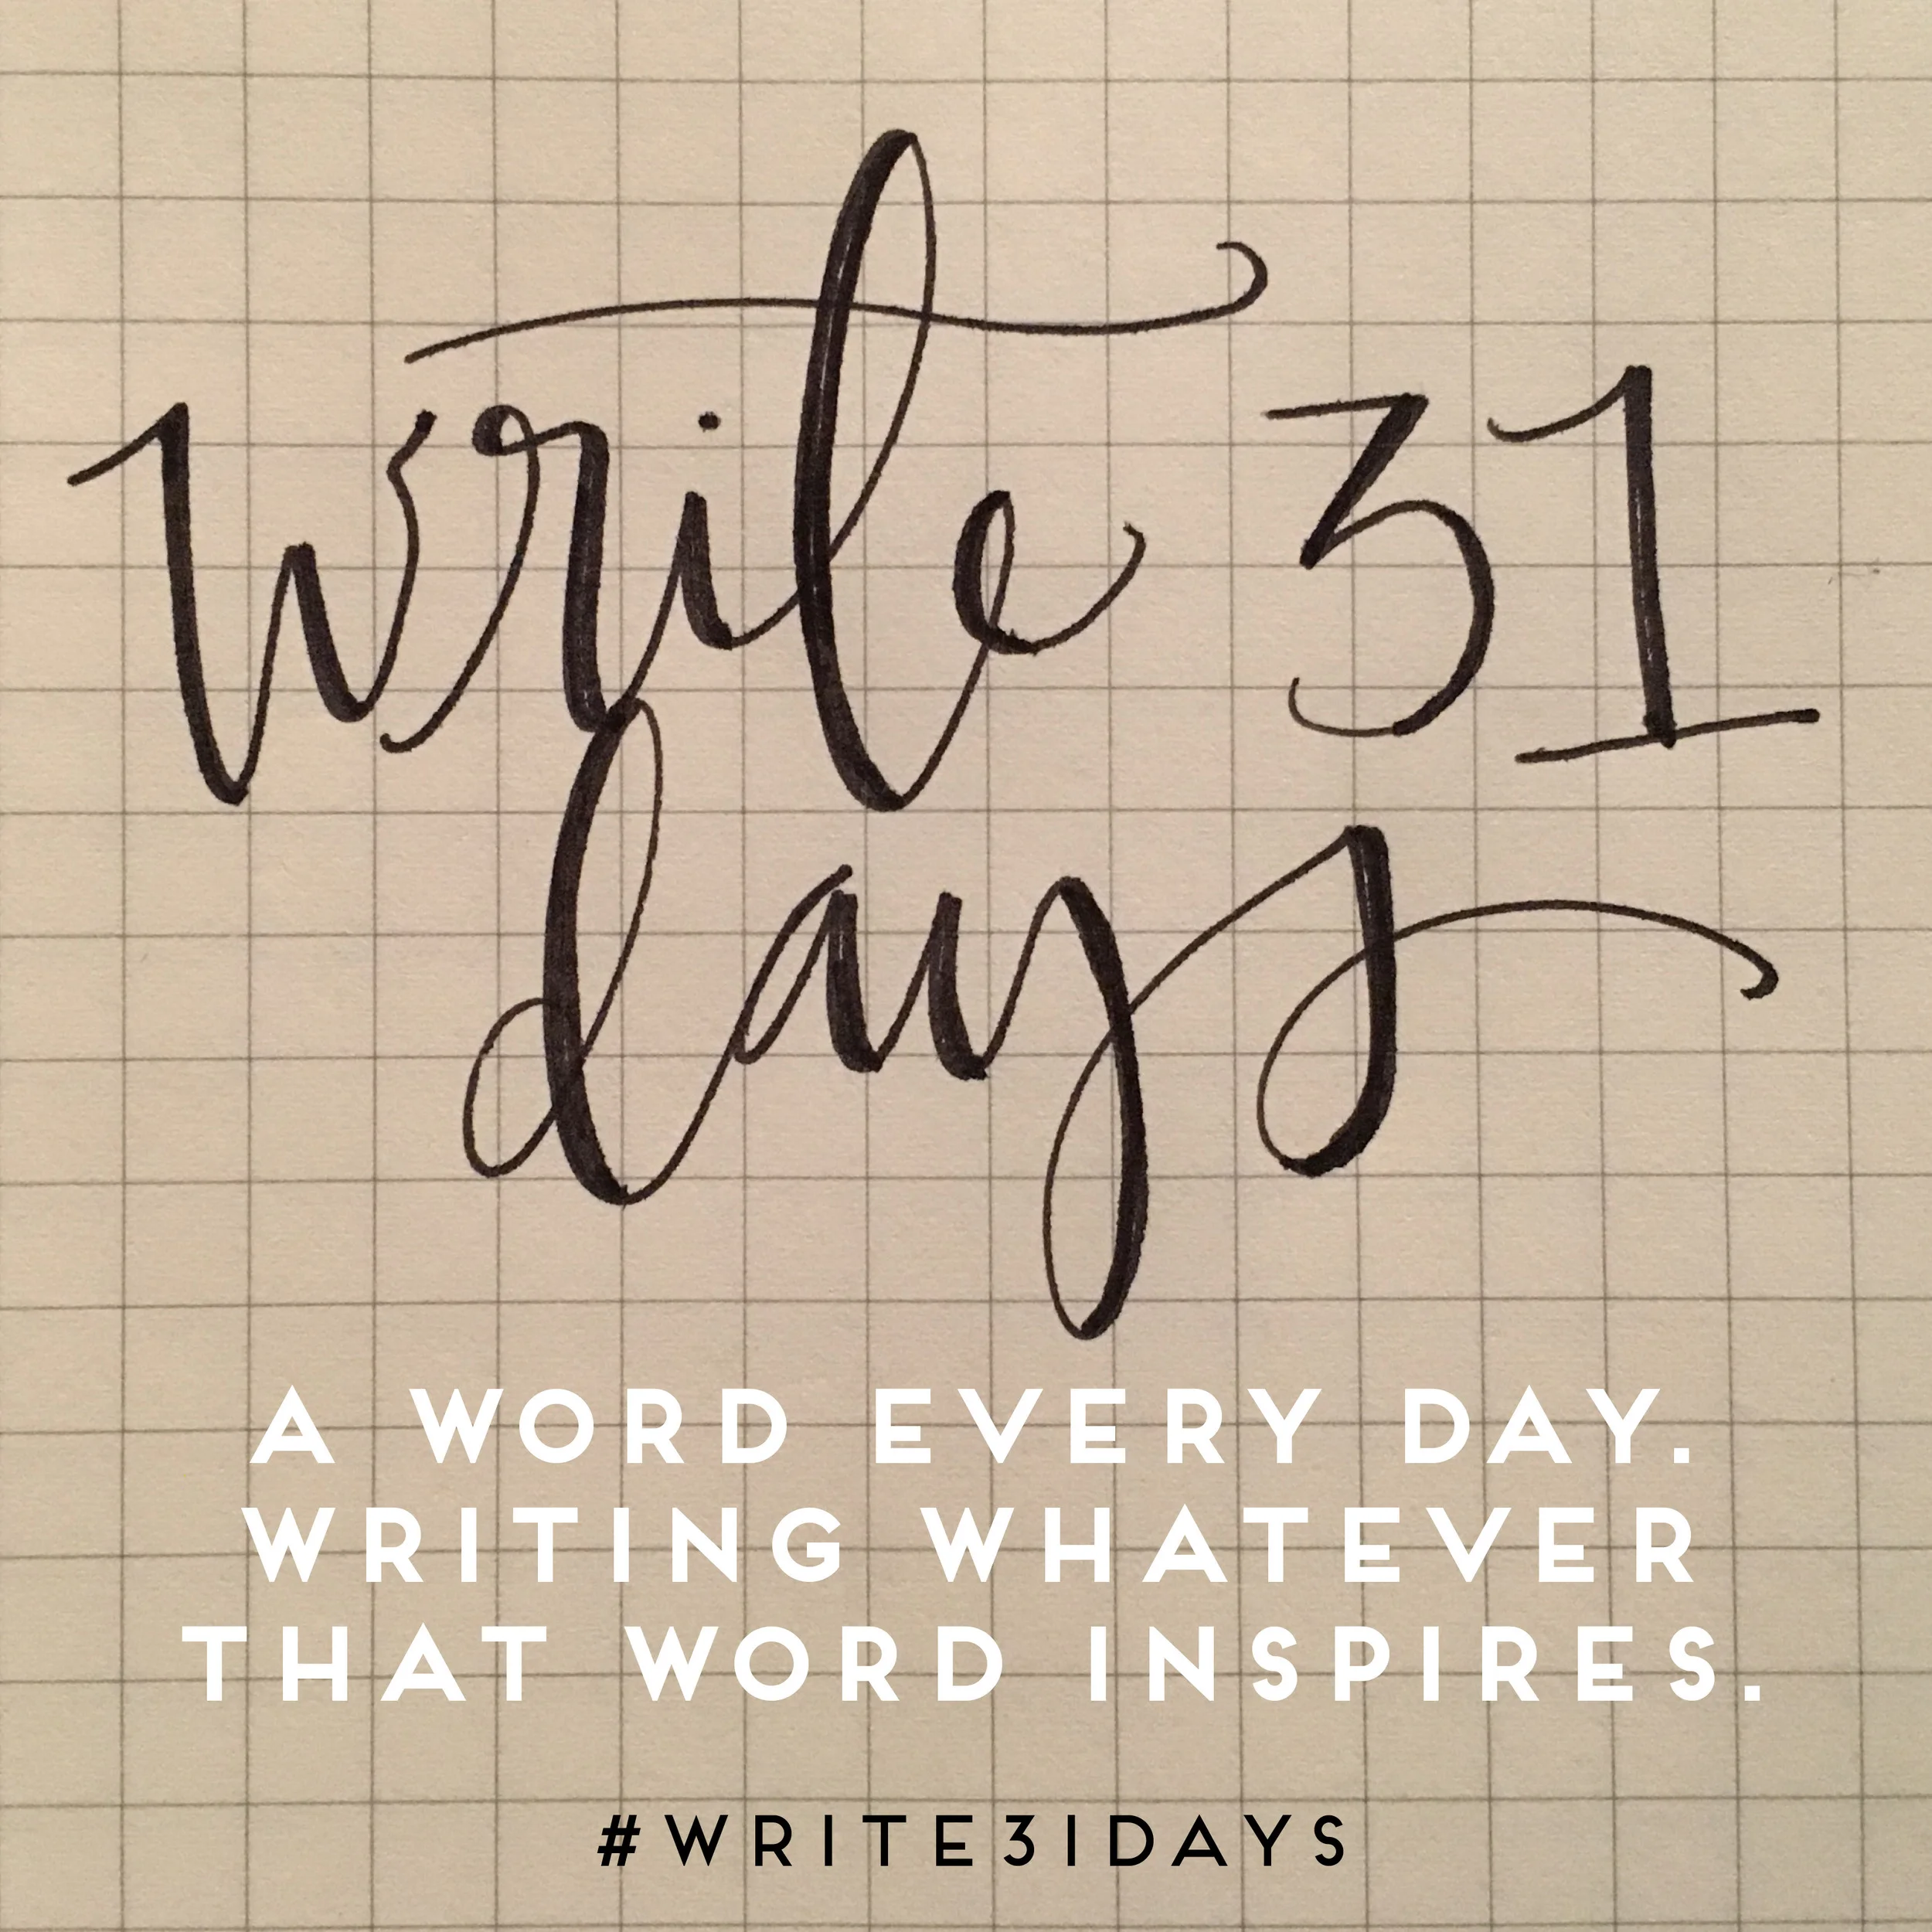 write 31
days
A WORD EVERY DAY.
WRITING WHATEVER
THAT WORD INSPIRES.
#WRITE31DAYS